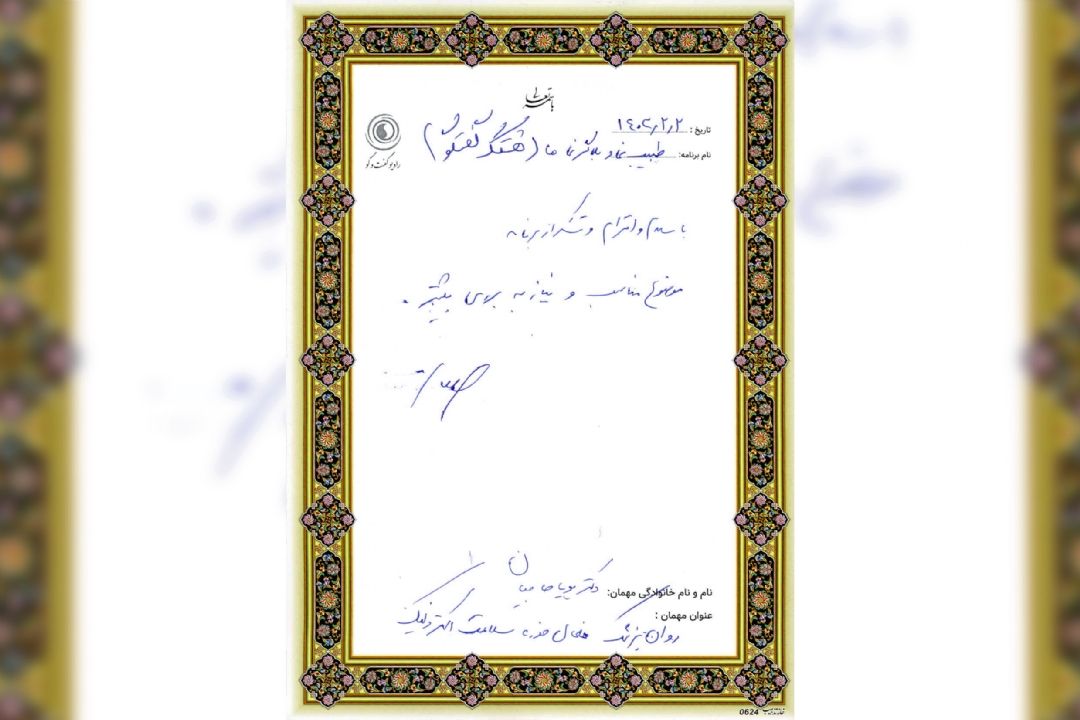 باسمه تعالی
تاریخ: ۱۴۰۲/۲/۲
نام برنامه: طبیب نما و بلاگر نما ها (هشتگ گفتگو)
رادیو گفت و گو
با سلام و احترام و تشکر از برنامه
موضوع مناسب و نیاز به بررسی بیشتر.
نام و نام خانوادگی مهمان: دکتر پویا
عنوان مهمان:
روان پزشک فعال حوزه سلامت الکترونیک
0624